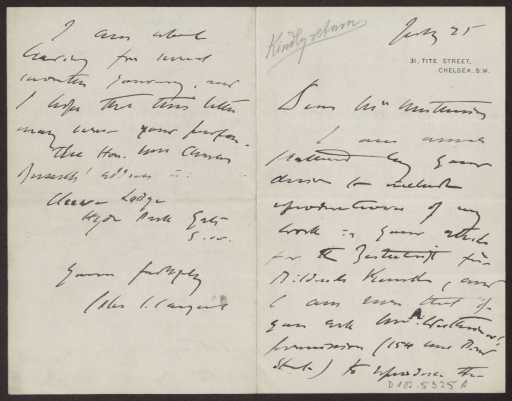 Kindly return
July 25
31, TITE STREET,
CHELSEA. S.W.
Dear Mrs
I am much
by your
desire to include
reproductions of my
work in your article
for the Zeitschrift für
Bildende Kunst, and
I am sure that if
you ask Mrs
permission (154 West
) to reproduce the
D102.5325 A
I am about
leaving for several
months journey, and
I hope that this letter
may serve your purpose.
The Hon. Miss
address is:
Lodge
Hyde Park Gate
S.W.
Yours faithfully
John S. Sargent